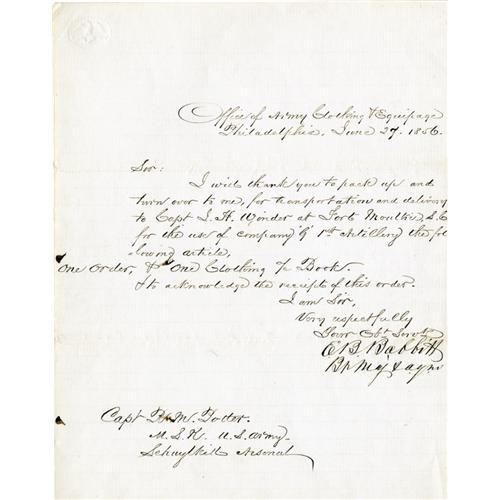 Office of Army Clothing & Equipage
Philadelphia, June 27. 1856.
Sir:
I will thank you to pack up and
turn over to me, for transportation and delivery
to Capt at Fort Moultrie, S.C
for the use of company 1st Artillery the fol
lowing article,
one order, & one Clothing Book.
& to acknowledge the receipt of this order.
I am Sir,
Very respectfully
Your Obt Servt
E B Babbitt
Capt
M. S. K. U. S. Army
Schuylkill Arsenal